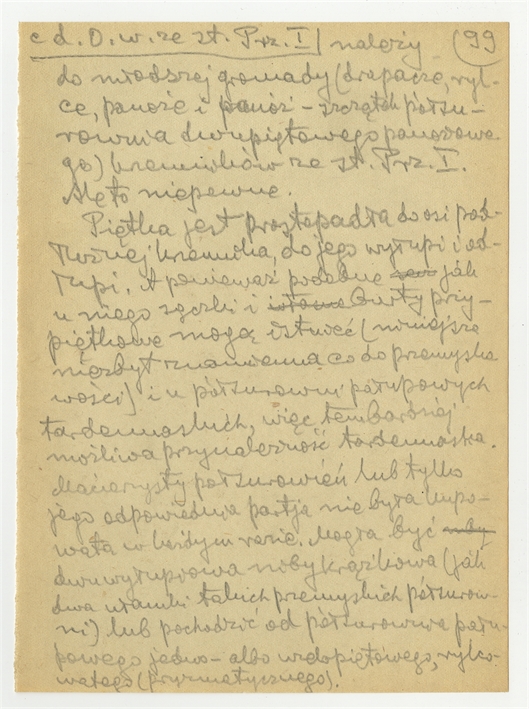 c d. O. w. ze st. Prz. I) należy (99
do młodszej gromady (drapacze, ryl-
ce, panoże i panóż – szczątek półsu-
rownia dwupiętowego panożowe
go) krzemików ze st. Prz. I.
Ale to niepewne.
Piętka jest prostopadła do osi pod-
łużnej krzemika, do jego wyłupi i od-
łupi. A ponieważ podobne jak
u niego sączki i guzy przy-
piętkowe mogą istnieć (mniejsze
niezbyt znamienne co do przemysło
wości) i u półsurowni połupowych
tardenoaskich, więc tembardziej
możliwa przynależność tardenoaska.
Macierzysty półsurowień lub tylko
jego odpowiednia partja nie była łupo-
wata w każdym razie. Mogła być
dwuwyłupniowa niby krążkowa (jak
dwa ułamki takich przemyskich półsurow-
ni) lub pochodzić od półsurownia połu-
powego jedno- albo wielopiętowego, rylco-
watego (pryzmatycznego).